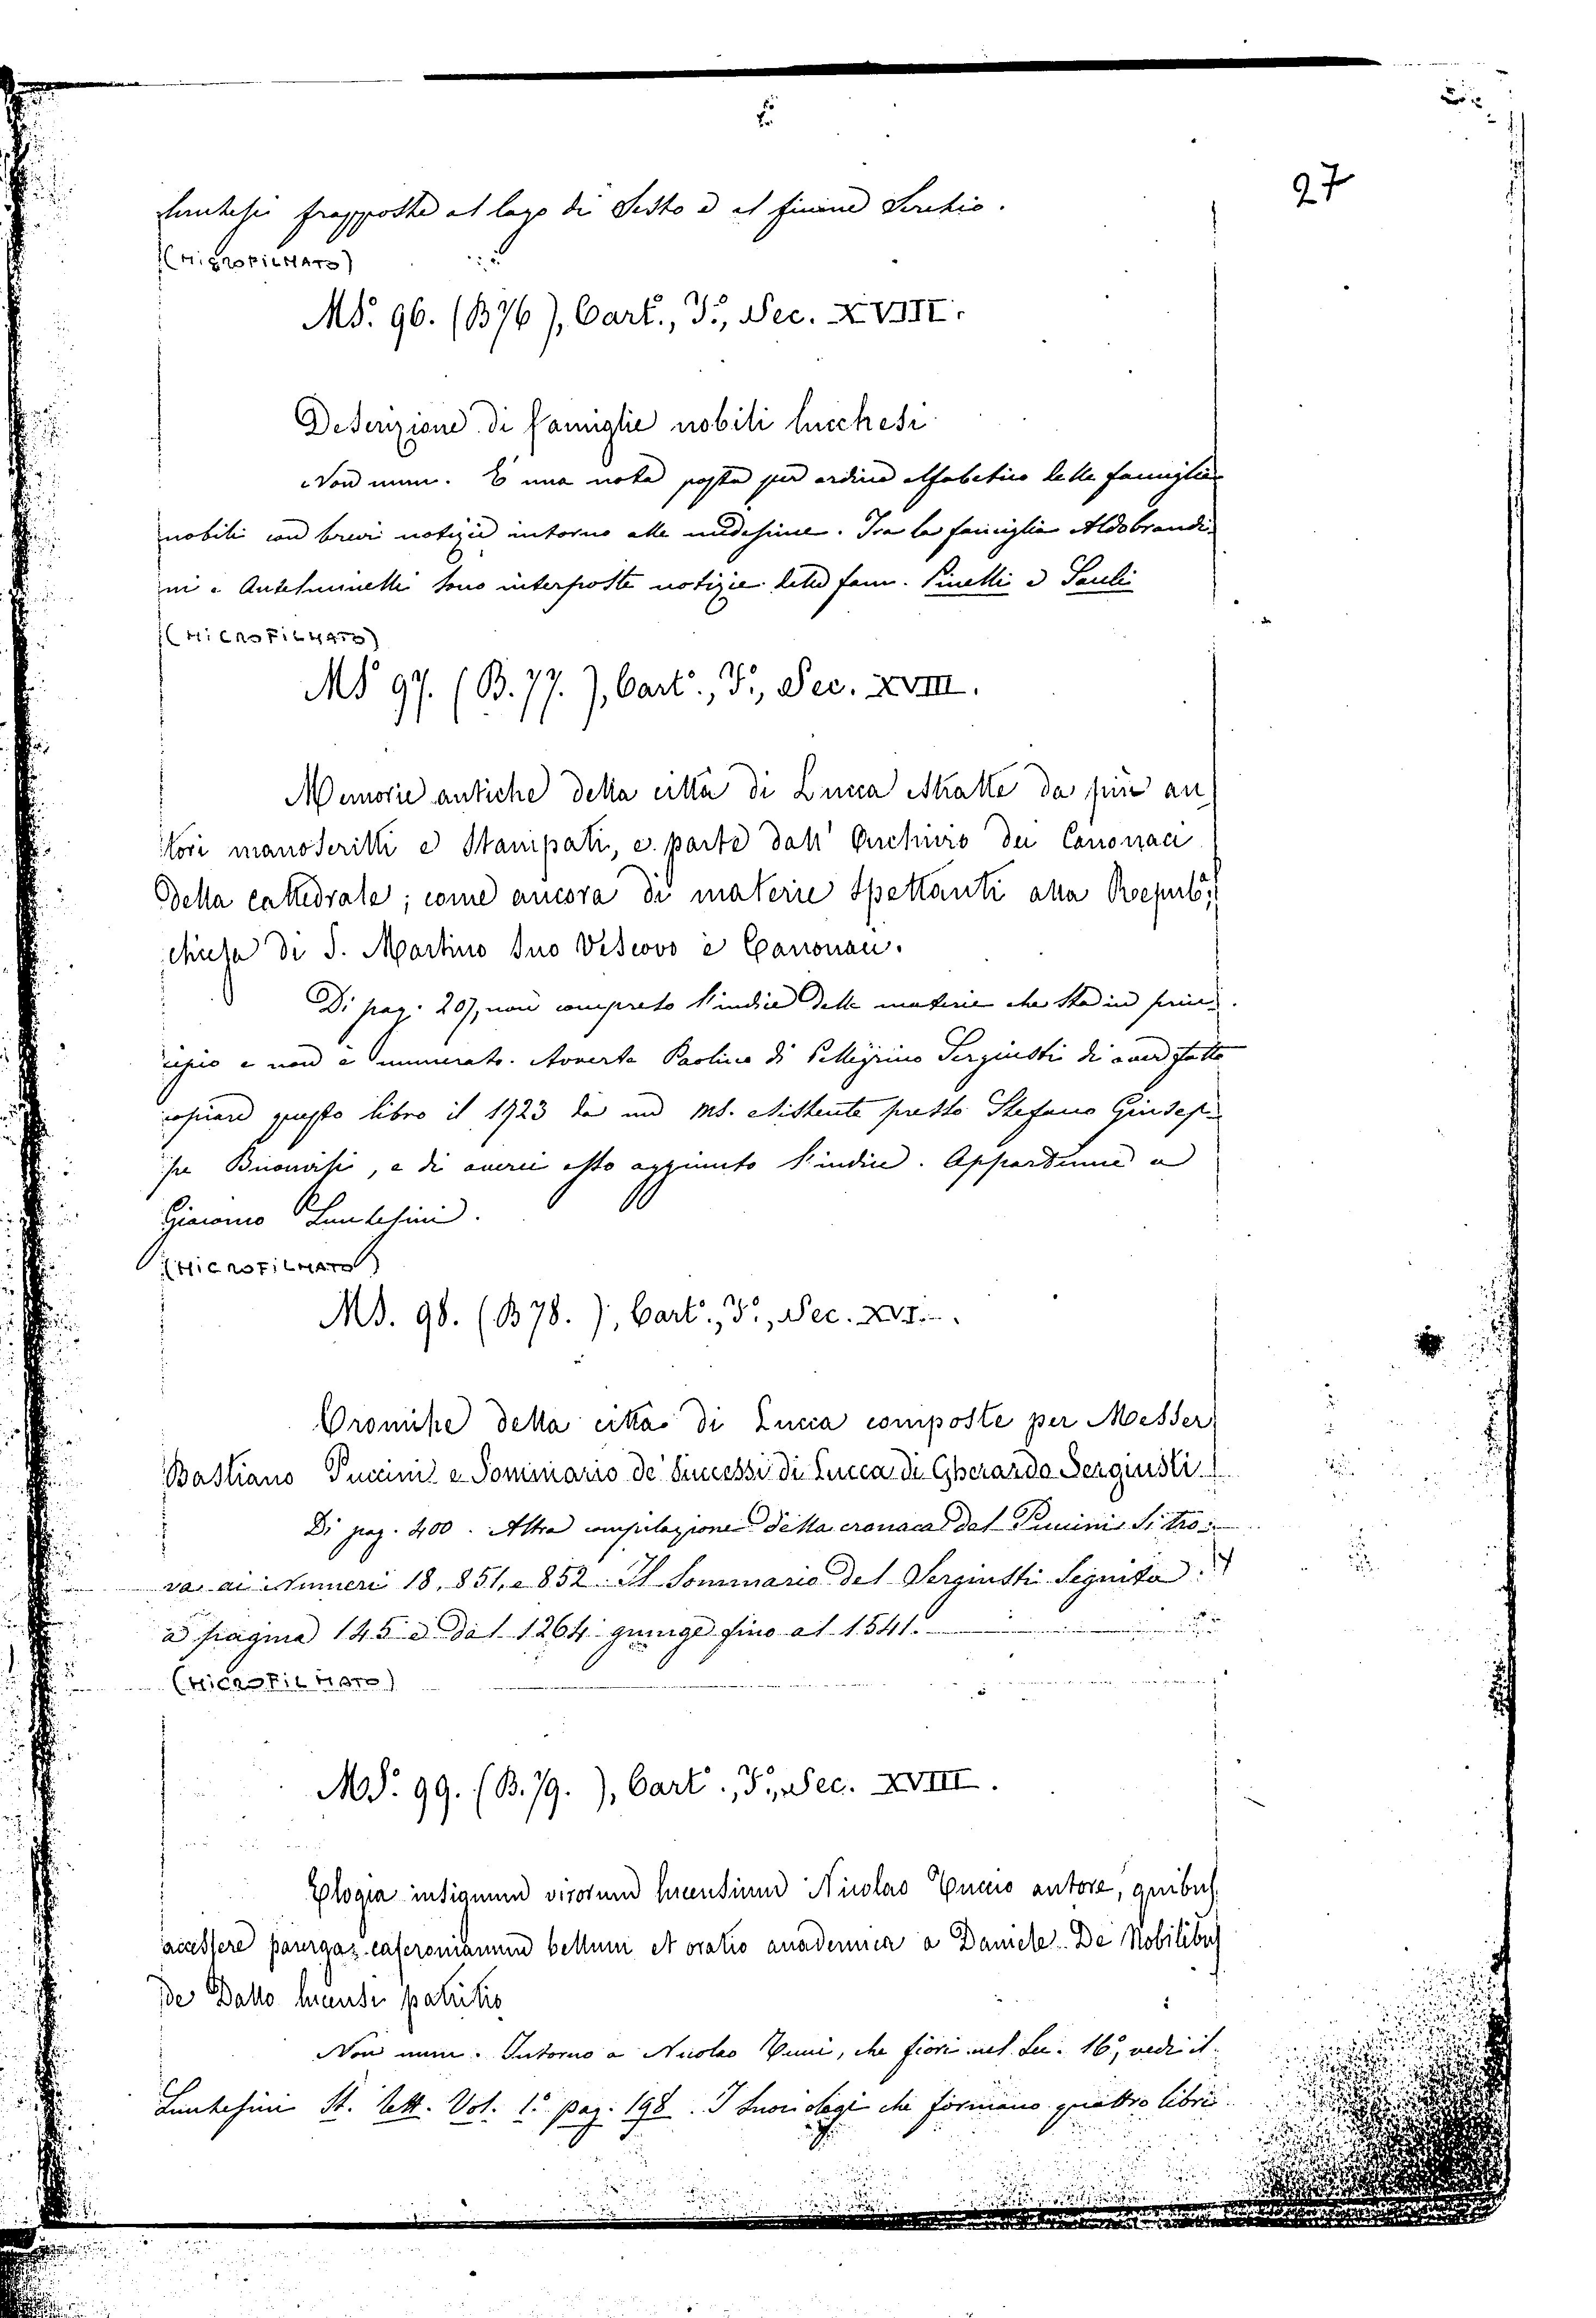 27
frapposte al lago di Sesto e al fiume Serchio.
(MICROFILMATO)
MS. 96. (B 76), Cart., F.°, Sec. XVIII.
Descrizione di famiglie nobili lucchesi
Non num. È una nota posta per ordine alfabetico delle famiglie
nobili con brevi notizie intorno alle medesime. Tra la famiglia Aldobrandi
ni e Antelminelli sono interposte notizie delle fam. Pinelli e Pauli
(MICROFILMATO)
MS 97. (B. 77.), Cart.°, F.°, Sec. XVIII.
Memorie antiche della città di Lucca estratte da più au
tori manoscritti e stampati, e parte dall' Archivio dei Canonaci
della cattedrale; come ancora di materie spettanti alla Repub.ᵃ,
chiesa di S. Martino suo Vescovo e Canonaci.
Di pag. 207, non compreso l'indice delle materie che sta in prin
cipio e non è numerato. Avverte Paolino di Pellegrino Sergiusti di aver fatto
copiare questo libro il 1723 da un MS. esistente presso Stefano Giusep
pe Buonvisi, e di averci esso aggiunto l'indice. Appartenne a
Giacomo Lucchesini.
(MICROFILMATO)
MS. 98. (B 78.), Cart.°, F.°, Sec. XVI.
Croniche della città di Lucca composte per Messer
Bastiano Puccini e Sommario de' Successi di Lucca di Gherardo Sergiusti
Di pag. 400. Altra compilazione della cronaca del Puccini si tro
va ai Numeri 18, 851, e 852. Il Sommario del Sergiusti seguita
a pagina 145 e dal 1264 giunge fino al 1541.
(MICROFILMATO)
MS. 99. (B. 79.), Cart.°, F.°, Sec. XVIII.
Elogia insignium virorum lucensium Nicolao Tuccio autore, quibus
accessere parerga: caferonianum bellum et oratio academica a Daniele De Nobilibus
de Dallo lucensi patritio
Non num. Intorno a Nicolao Tucci, che fiorì nel Sec. 16°, vedi il
Lucchesini St. lett. Vol. 1.° pag. 198. I suoi elogi che formano quattro libri